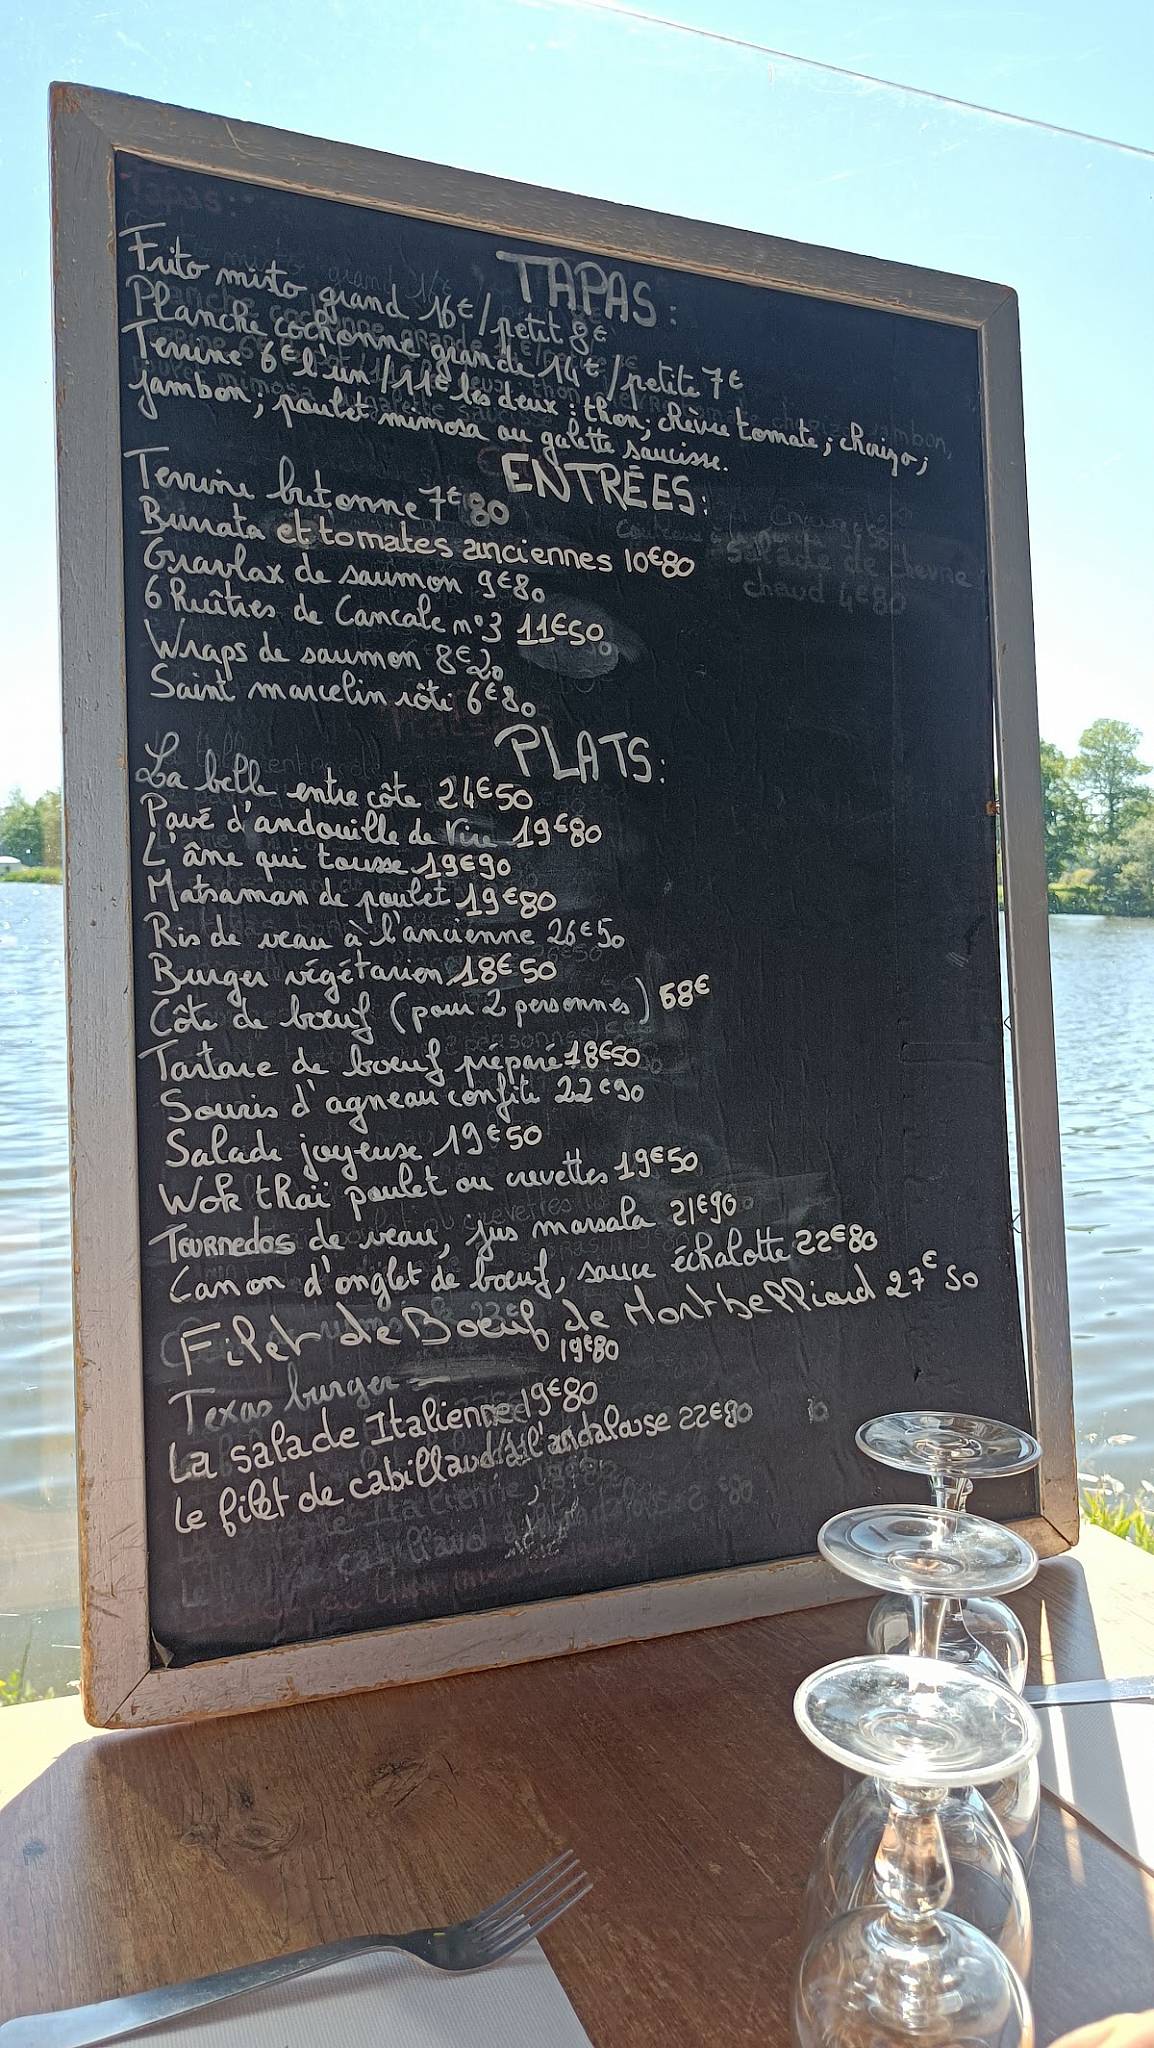 TAPAS:
Frito misto grand 16€/petit 8€
Planche cochonne grande 14€/petite 7€
Terrine 6€ l'un/11€ les deux: thon; chèvre tomate; chorizo;
jambon; poulet mimosa ou galette saucisse.
ENTRÉES:
Terrine bretonne 7€80
Burrata et tomates anciennes 10€80
Gravlax de saumon 9€80
6 huîtres de Cancale n°3 11€50
Wraps de saumon 8€20
Saint marcelin rôti 6€80
salade de chèvre
chaud 4€80
PLATS:
La belle entre côte 24€50
Pavé d'andouille de Vire 19€80
L'âme qui tousse 19€90
Matsaman de poulet 19€80
Ris de veau à l'ancienne 26€50
Burger végétarien 18€50
Côte de bœuf (pour 2 personnes) 58€
Tartare de bœuf préparé 18€50
Souris d'agneau confite 22€90
Salade joyeuse 19€50
Wok thaï poulet ou crevettes 19€50
TOURNEDOS de veau, jus marsala 21€90
Canon d'onglet de bœuf, sauce échalotte 22€80
Filet de Boeuf de Montbelliard 27€50
Texas burger 19€80
La salade Italienne 19€80
Le filet de cabillaud à l'andalouse 22€80